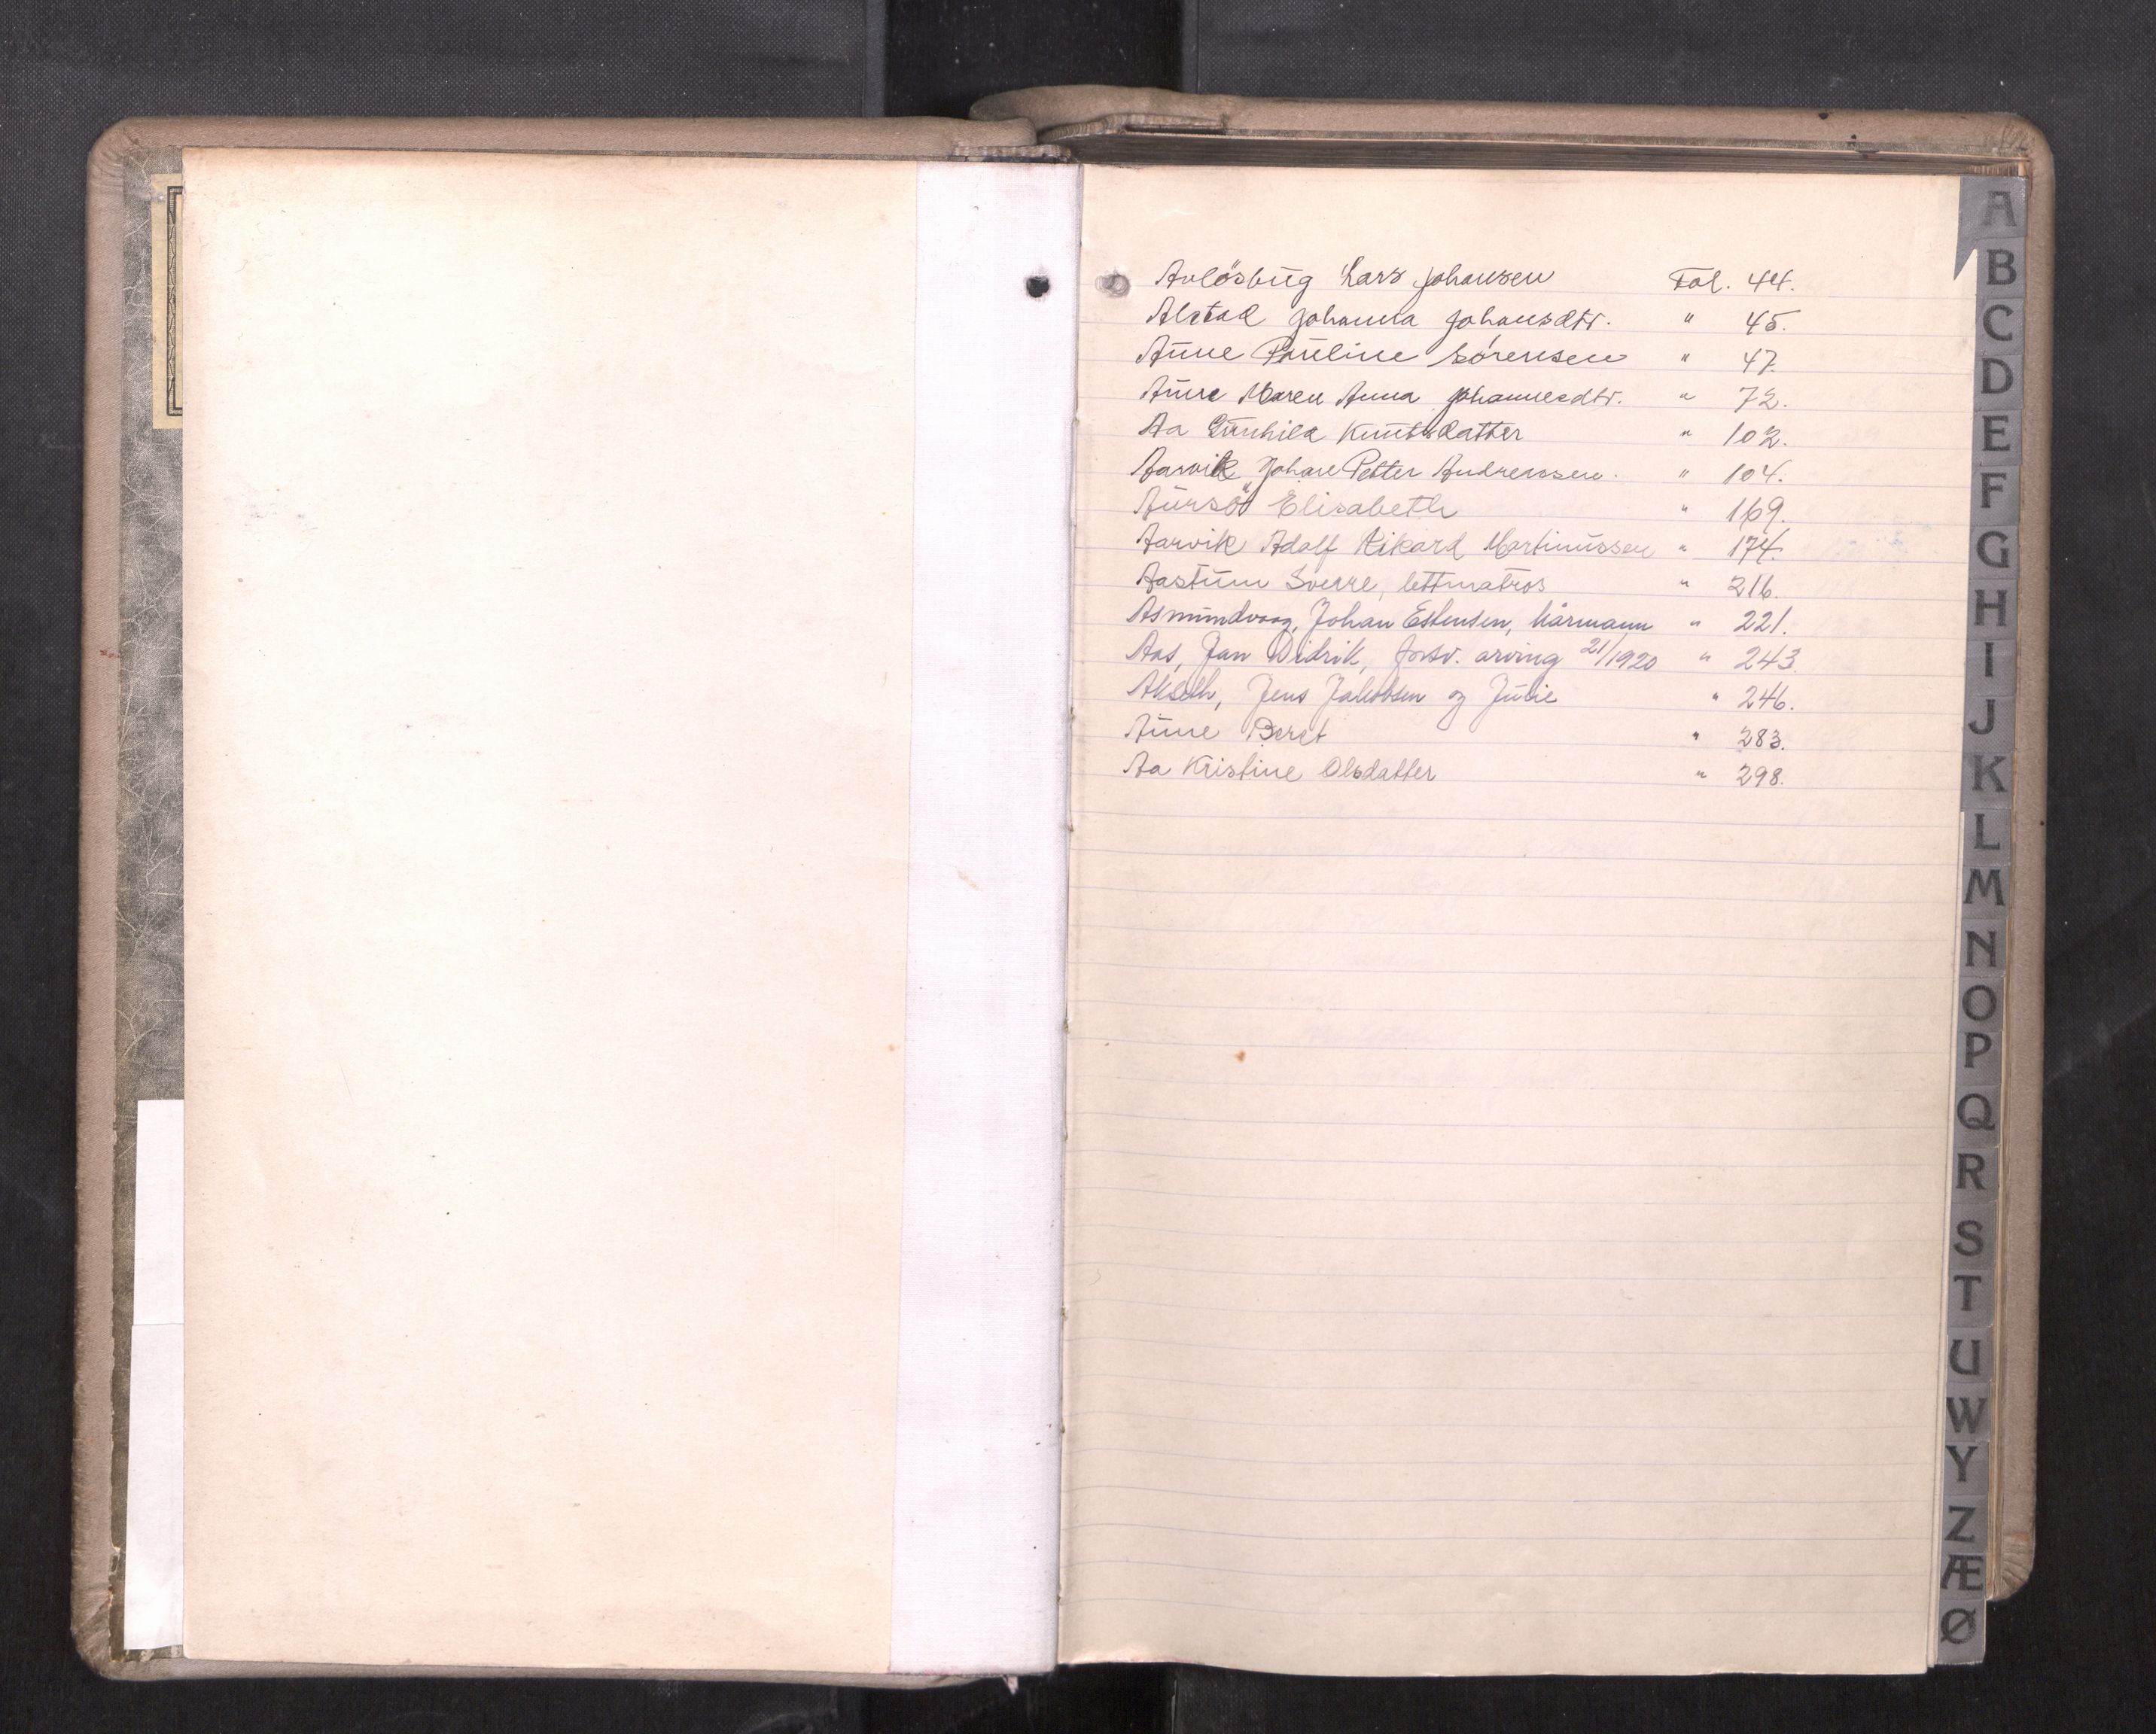 Avlösbug Lars Johansen Fol. 44.
Alstad Johanna Johansdtr. " 45.
Aune Pauline Sörensen " 47.
Aune Maren Anna Johannesdtr. " 72.
Aa Gunhild Knutsdatter " 102.
Aarvik Johan Petter Andreassen. " 104.
Aursö Elisabeth " 169.
Aarvik Adolf Rikard Martinussen " 174.
Aastum Sverre, lettmatros " 216.
Asmundvaag, Johan Estensen, hårmann " 221.
Aas, Jan Didrik, forsv. arving 21/1920 " 243.
Akseth, Jens Jakobsen og Julie " 246.
Aune Beret " 283.
Aa Kristine Olsdatter " 298.
A
B
C
D
E
F
G
H
I
J
K
L
M
N
O
P
Q
R
S
T
U
W
Y
Z
Æ
Ø